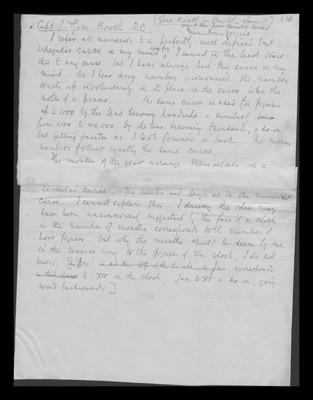 Capt. J. Gore Booth D.C.
I refer all numerals to a perfectly well defined but
irregular curve in my mind, I cannot in the least trace
this to any cause but I have always had this curve in my
mind. As I hear any number pronounced the number
starts up involuntarily in its place in the curve like the
note of a piano. The same curve is used for figures
up to 1000 by the tens becoming hundreds &
from 1000 to 100,000 by the tens becoming thousands, & so on
but getting fainter as I look forward or back. The minus
numbers follow exactly the same curve.
The months of the year arrange themselves in a
circular curve - the weeks and days as in the numerical
curve. I cannot explain this. I daresay the idea may
have been unconsciously suggested by the face of a clock
as the number of months corresponds with number of
hour figures but why the months should be seen by me
in the reverse way to the figures of the clock, I do not
know. corresponds
to XII in the clock. Jan to XI & so on, going
round backwards ]